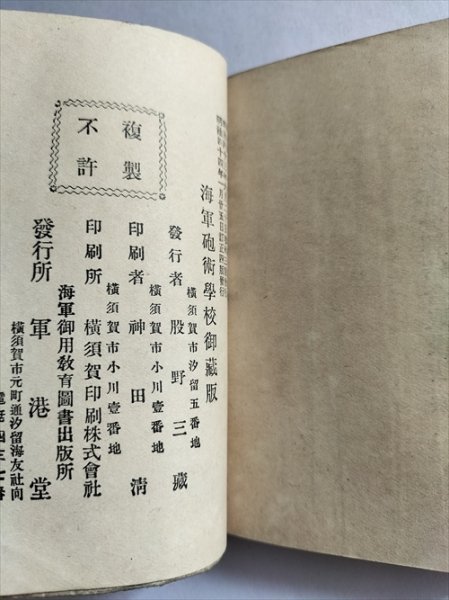 海軍砲術學校御藏版
橫須賀市汐留五番地
發行者 股野三藏
橫須賀市小川壹番地
印刷者 神田淸
橫須賀市小川壹番地
印刷所 橫須賀印刷株式會社
海軍御用敎育圖書出版所
發行所 軍港堂
橫須賀市元町通汐留海友社向
複製
不許